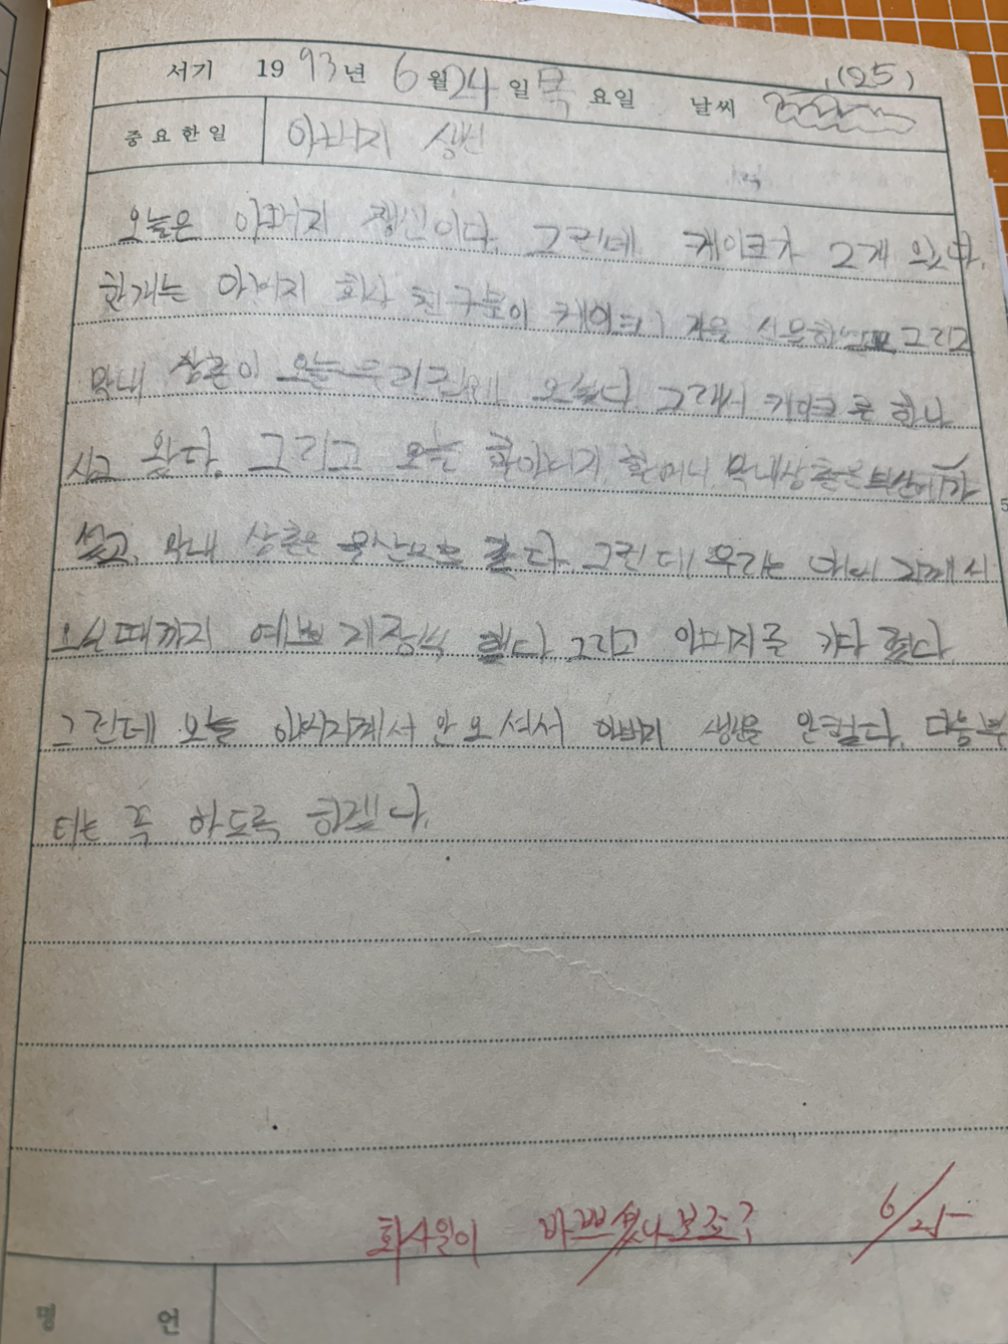 (25)
서기 1993년 6월 24일 목요일 날씨
중요한일 아버지 생신
오늘은 아버지 생신이다. 그런데 케이크가 2개 있다.
한개는 아버지 회사 친구분이 케이크 그리고
막내 삼촌이 오늘 우리집에 오셨다. 그래서 하나
사고 왔다. 그리고 오늘 할아버지, 할머니, 막내삼촌은 부산에 가
셨고, 막내 삼촌은 울산으로 갔다. 그런데 우리는 아버지께서
오실때까지 예쁘게 장식 했다. 그리고 아버지를 기다렸다.
그런데 오늘 아버지께서 안오셔서 아버지 생신을 안했다. 다음부
터는 꼭 하도록 하겠다.
회사일이 바쁘셨나보죠? 6/25
명언